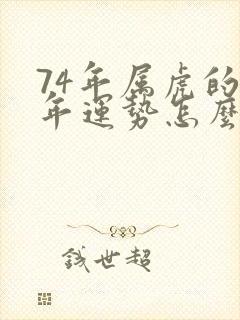 74年属虎的
年運势怎麽
钱世超